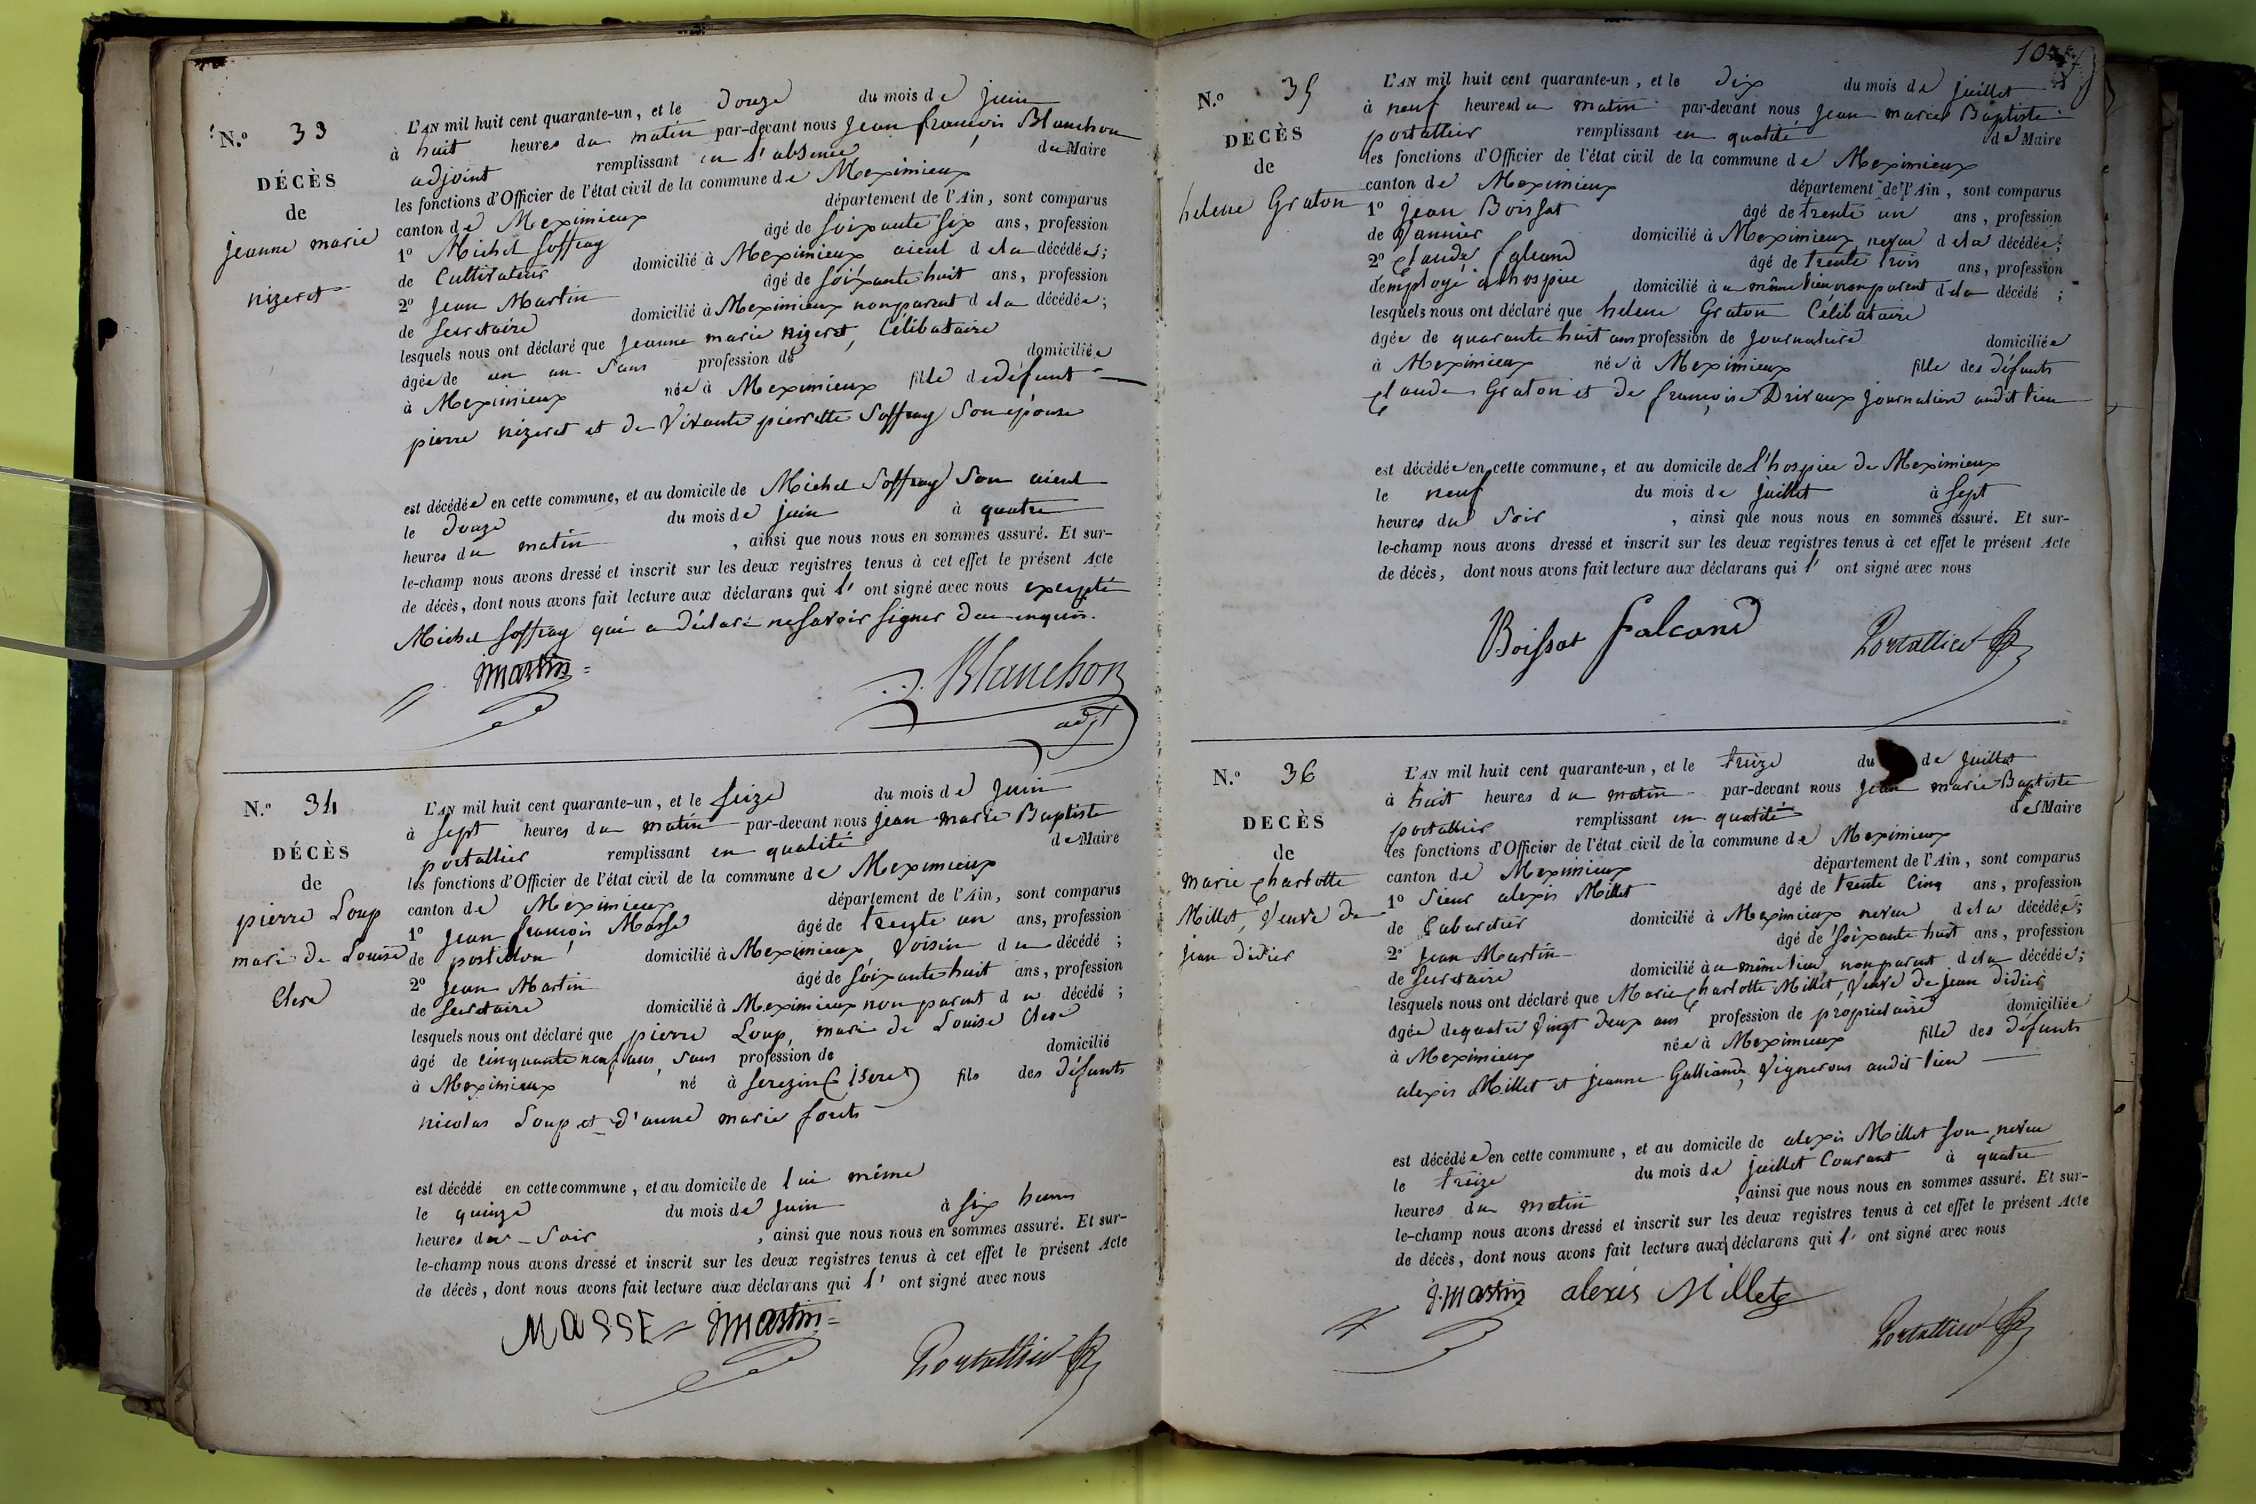 N.° 33
DÉCÈS
de
jeanne marie
nizeret
L'AN mil huit cent quarante-un, et le douze du mois de juin
à huit heures du matin par-devant nous jean françois Blanchon
adjoint remplissant en l'absence du Maire
les fonctions d'Officier de l'état civil de la commune de Meximieux
canton de Meximieux département de l'Ain, sont comparus
1° Michel Soffray âgé de soixante six ans, profession
de Cultivateur domicilié à Meximieux aieul de la décédée;
2° Jean Martin âgé de soixante huit ans, profession
de Secretaire domicilié à Meximieux non parent de la décédée;
lesquels nous ont déclaré que jeanne marie nizeret, Célibataire
âgée de un an Sans profession de domiciliée
à Meximieux née à Meximieux fille de défunt
pierre nizeret et de Vivante pierrette Soffray Son épouse
est décédée en cette commune, et au domicile de Michel Soffray Son aieul
le douze du mois de juin à quatre
heures du matin, ainsi que nous nous en sommes assuré. Et sur-
le-champ nous avons dressé et inscrit sur les deux registres tenus à cet effet le présent Acte
de décès, dont nous avons fait lecture aux déclarans qui l' ont signé avec nous excepté
Michel Soffray qui a déclaré ne savoir signer de ce enquis.
jmartin
J. Blanchon
adjt
N.° 34
DÉCÈS
de
pierre Loup
mari de Louise
Clere
L'AN mil huit cent quarante-un, et le seize du mois de juin
à sept heures du matin par-devant nous jean marie Baptiste
portallier remplissant en qualité de Maire
les fonctions d'Officier de l'état civil de la commune de Meximieux
canton de Meximieux département de l'Ain, sont comparus
1° jean françois Masse âgé de trente un ans, profession
de postillon domicilié à Meximieux Voisin du décédé;
2° Jean Martin âgé de soixante huit ans, profession
de Secretaire domicilié à Meximieux non parent du décédé;
lesquels nous ont déclaré que pierre Loup, mari de Louise Clere
âgé de cinquante neuf ans, sans profession de domicilié
à Meximieux né à serezin (isere) fils des défunts
nicolas Loup et d'anne marie
est décédé en cette commune, et au domicile de lui même
le quinze du mois de juin à six heures
heures du soir, ainsi que nous nous en sommes assuré. Et sur-
le-champ nous avons dressé et inscrit sur les deux registres tenus à cet effet le présent Acte
de décès, dont nous avons fait lecture aux déclarans qui l' ont signé avec nous
MASSE jmartin
Portallier
N.° 35
DECÈS
de
helene Graton
L'AN mil huit cent quarante-un, et le dix du mois de juillet
à neuf heures du matin par-devant nous jean marie Baptiste
portallier remplissant en qualité de Maire
les fonctions d'Officier de l'état civil de la commune de Meximieux
canton de Meximieux département de l'Ain, sont comparus
1° jean Boissat âgé de trente un ans, profession
de Vannier domicilié à Meximieux neveu de la décédée;
2° Claude falcand âgé de trente trois ans, profession
d'employé à l'hospice domicilié à u même lieu non parent de la décédé;
lesquels nous ont déclaré que helene Graton Célibataire
âgée de quarante huit ans profession de journaliere domiciliée
à Meximieux née à Meximieux fille des défunts
Claude Graton et de françoise Drivaux journaliers audit lieu
est décédée en cette commune, et au domicile de l'hospice de Meximieux
le neuf du mois de juillet à sept
heures du soir, ainsi que nous nous en sommes assuré. Et sur-
le-champ nous avons dressé et inscrit sur les deux registres tenus à cet effet le présent Acte
de décès, dont nous avons fait lecture aux déclarans qui l' ont signé avec nous
Boissat falcand Portallier
N.° 36
DECÈS
de
marie Charlotte
Millet, Veuve de
jean didier
L'AN mil huit cent quarante-un, et le treize du de juillet
à huit heures du matin par-devant nous jean marie Baptiste
portallier remplissant en qualité de Maire
les fonctions d'Officier de l'état civil de la commune de Meximieux
canton de Meximieux département de l'Ain, sont comparus
1° Sieur alexis Millet âgé de trente Cinq ans, profession
de Cabaretier domicilié à Meximieux neveu de la décédée;
2° Jean Martin âgé de soixante huit ans, profession
de Secretaire domicilié à u même lieu, non parent de la décédée;
lesquels nous ont déclaré que Marie Charlotte Millet, Veuve de jean didier
âgée de quatre vingt deux ans profession de propriétaire domiciliée
à Meximieux née à Meximieux fille des défunts
alexis Millet et jeanne Galliand, Vignerons audit lieu
est décédée en cette commune, et au domicile de alexis Millet son neveu
le treize du mois de juillet Courant à quatre
heures du matin, ainsi que nous nous en sommes assuré. Et sur-
le-champ nous avons dressé et inscrit sur les deux registres tenus à cet effet le présent Acte
de décès, dont nous avons fait lecture aux déclarans qui l' ont signé avec nous
j.martin alexis Millet
Portallier